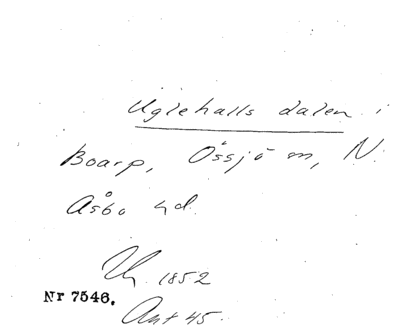 Uglehalls dalen i
Boarp, Össjö sn, N.
Åsbo hd.
1852
Nr 7546.
Ant 45.